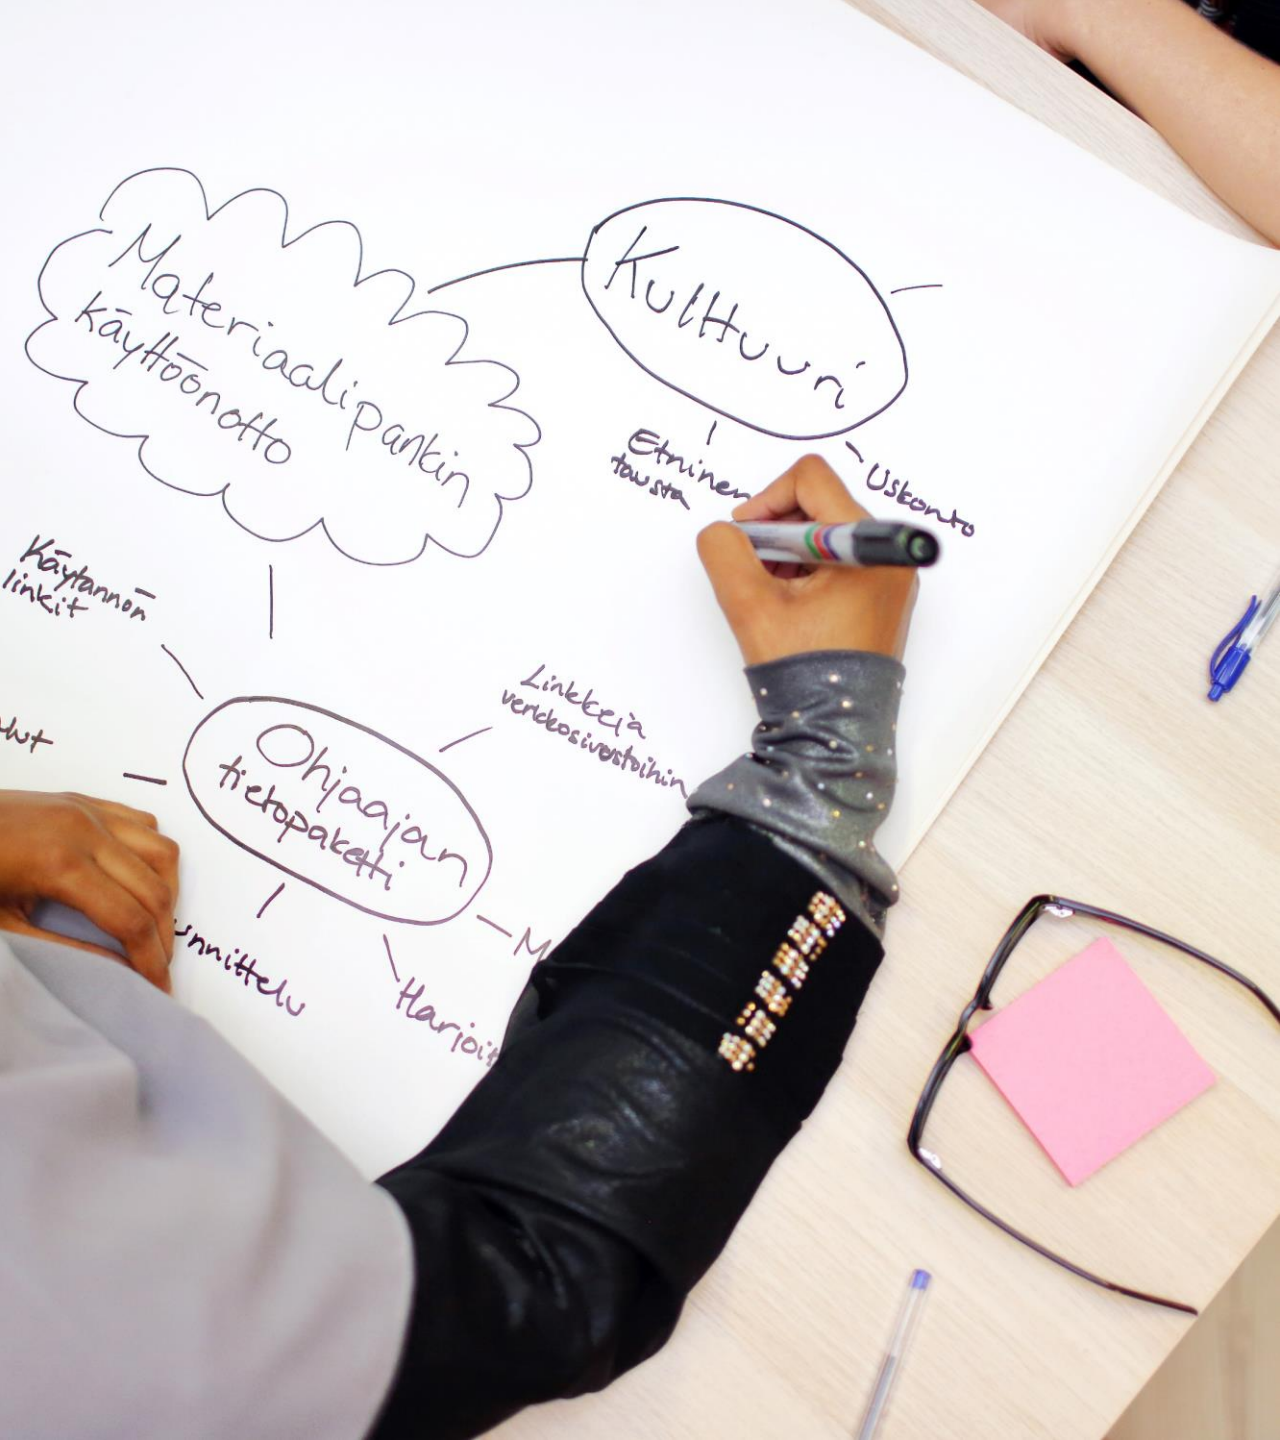 Materiaalipankin
käyttöönotto
Kulttuuri
Etninen
tausta
Uskonto
Käytännön
linkit
Linkkejä
verkkosivustoihin
Ohjaajan
tietopaketti
unnittelu
Harjoit
M